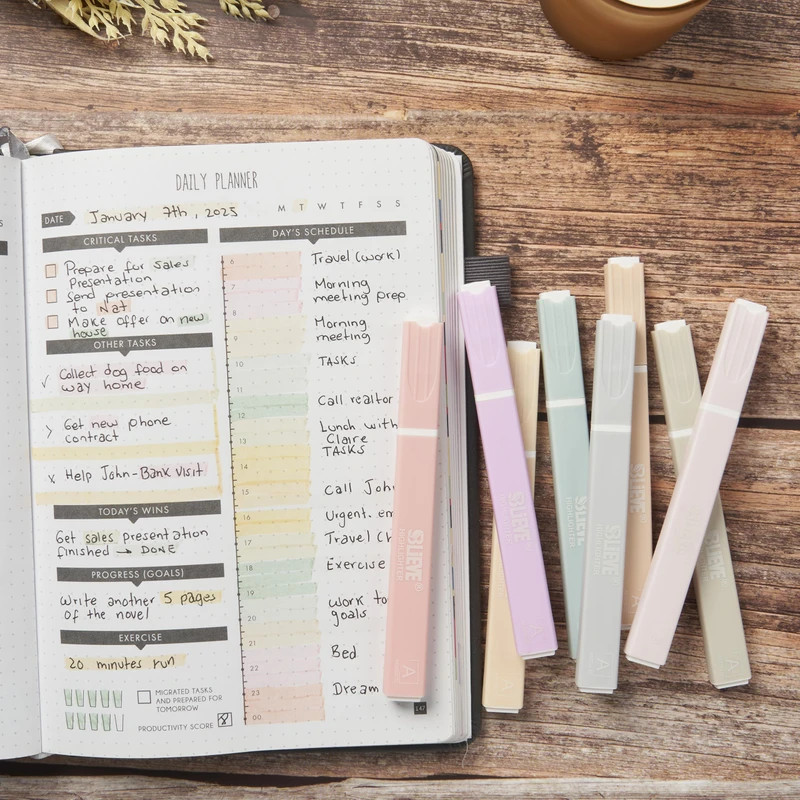 DAILY PLANNER
DATE January 7th, 2025
M T W T F S S
CRITICAL TASKS
Prepare for sales
Presentation
Send presentation
to Nat
Make offer on new
house
OTHER TASKS
Collect dog food on
way home
Get new phone
contract
Help John-Bank visit
TODAY'S WINS
Get sales presentation
finished → DONE
PROGRESS (GOALS)
Write another 5 pages
of the novel
EXERCISE
20 minutes run
MIGRATED TASKS
AND PREPARED FOR
TOMORROW
PRODUCTIVITY SCORE
DAY'S SCHEDULE
6 Travel (work)
7 Morning
meeting prep
8 Morning
9 meeting
10 TASKS
11
12 Call realtor
13 Lunch with
Claire
14 TASKS
15 Call John
16 Urgent.
17 Travel
18 Exercise
19
20 Work to
goals
21
22 Bed
23 Dream
00
147
HIGHLIGHTER
HIGHLIGHTER